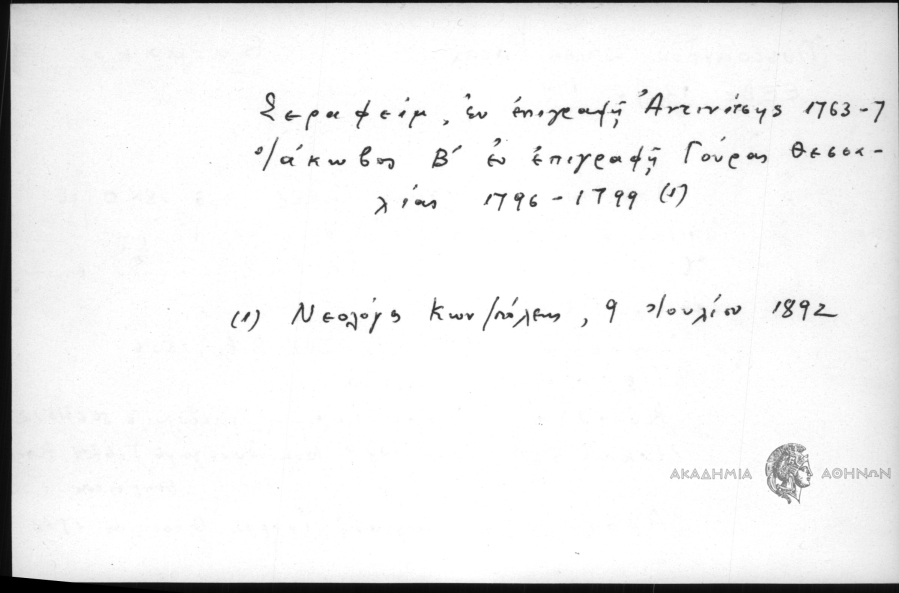 Σεραφείμ, ἐν ἐπιγραφῇ Ἀντινίτσης 1763-7
Ἰάκωβος Β´ ἐν ἐπιγραφῇ Γούρας Θεσσα-
λίας 1796-1799 (1)
(1) Νεολόγος Κων/πόλεως, 9 Ἰουλίου 1892
ΑΚΑΔΗΜΙΑ ΑΘΗΝΩΝ